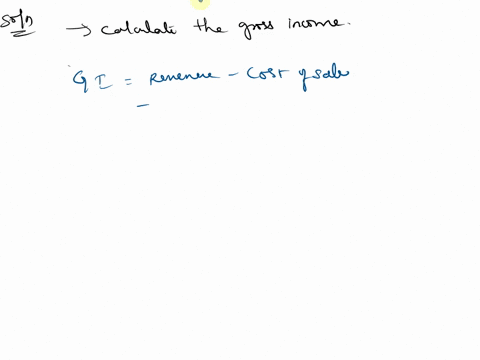 Soln → Calculate the gross income.
GI = Revenue - Cost of sale
=